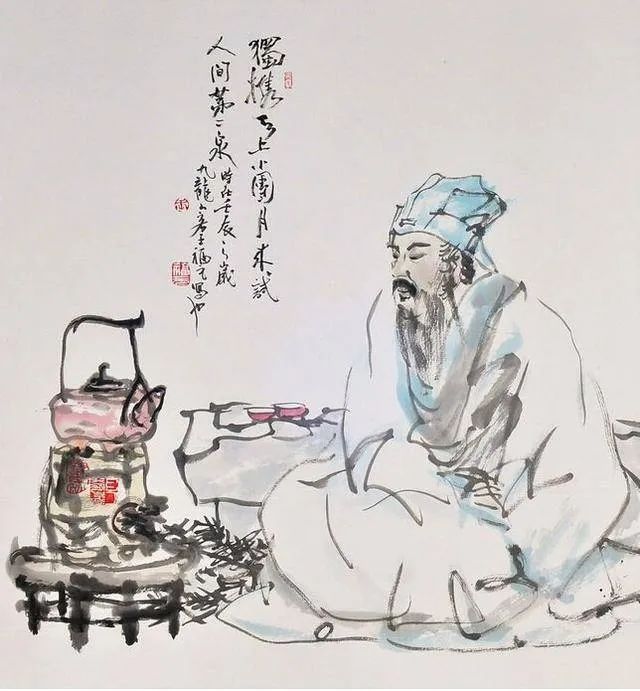 獨攜天上小團月來試
人間第二泉 時在壬辰之歲
九龍 福 寫也